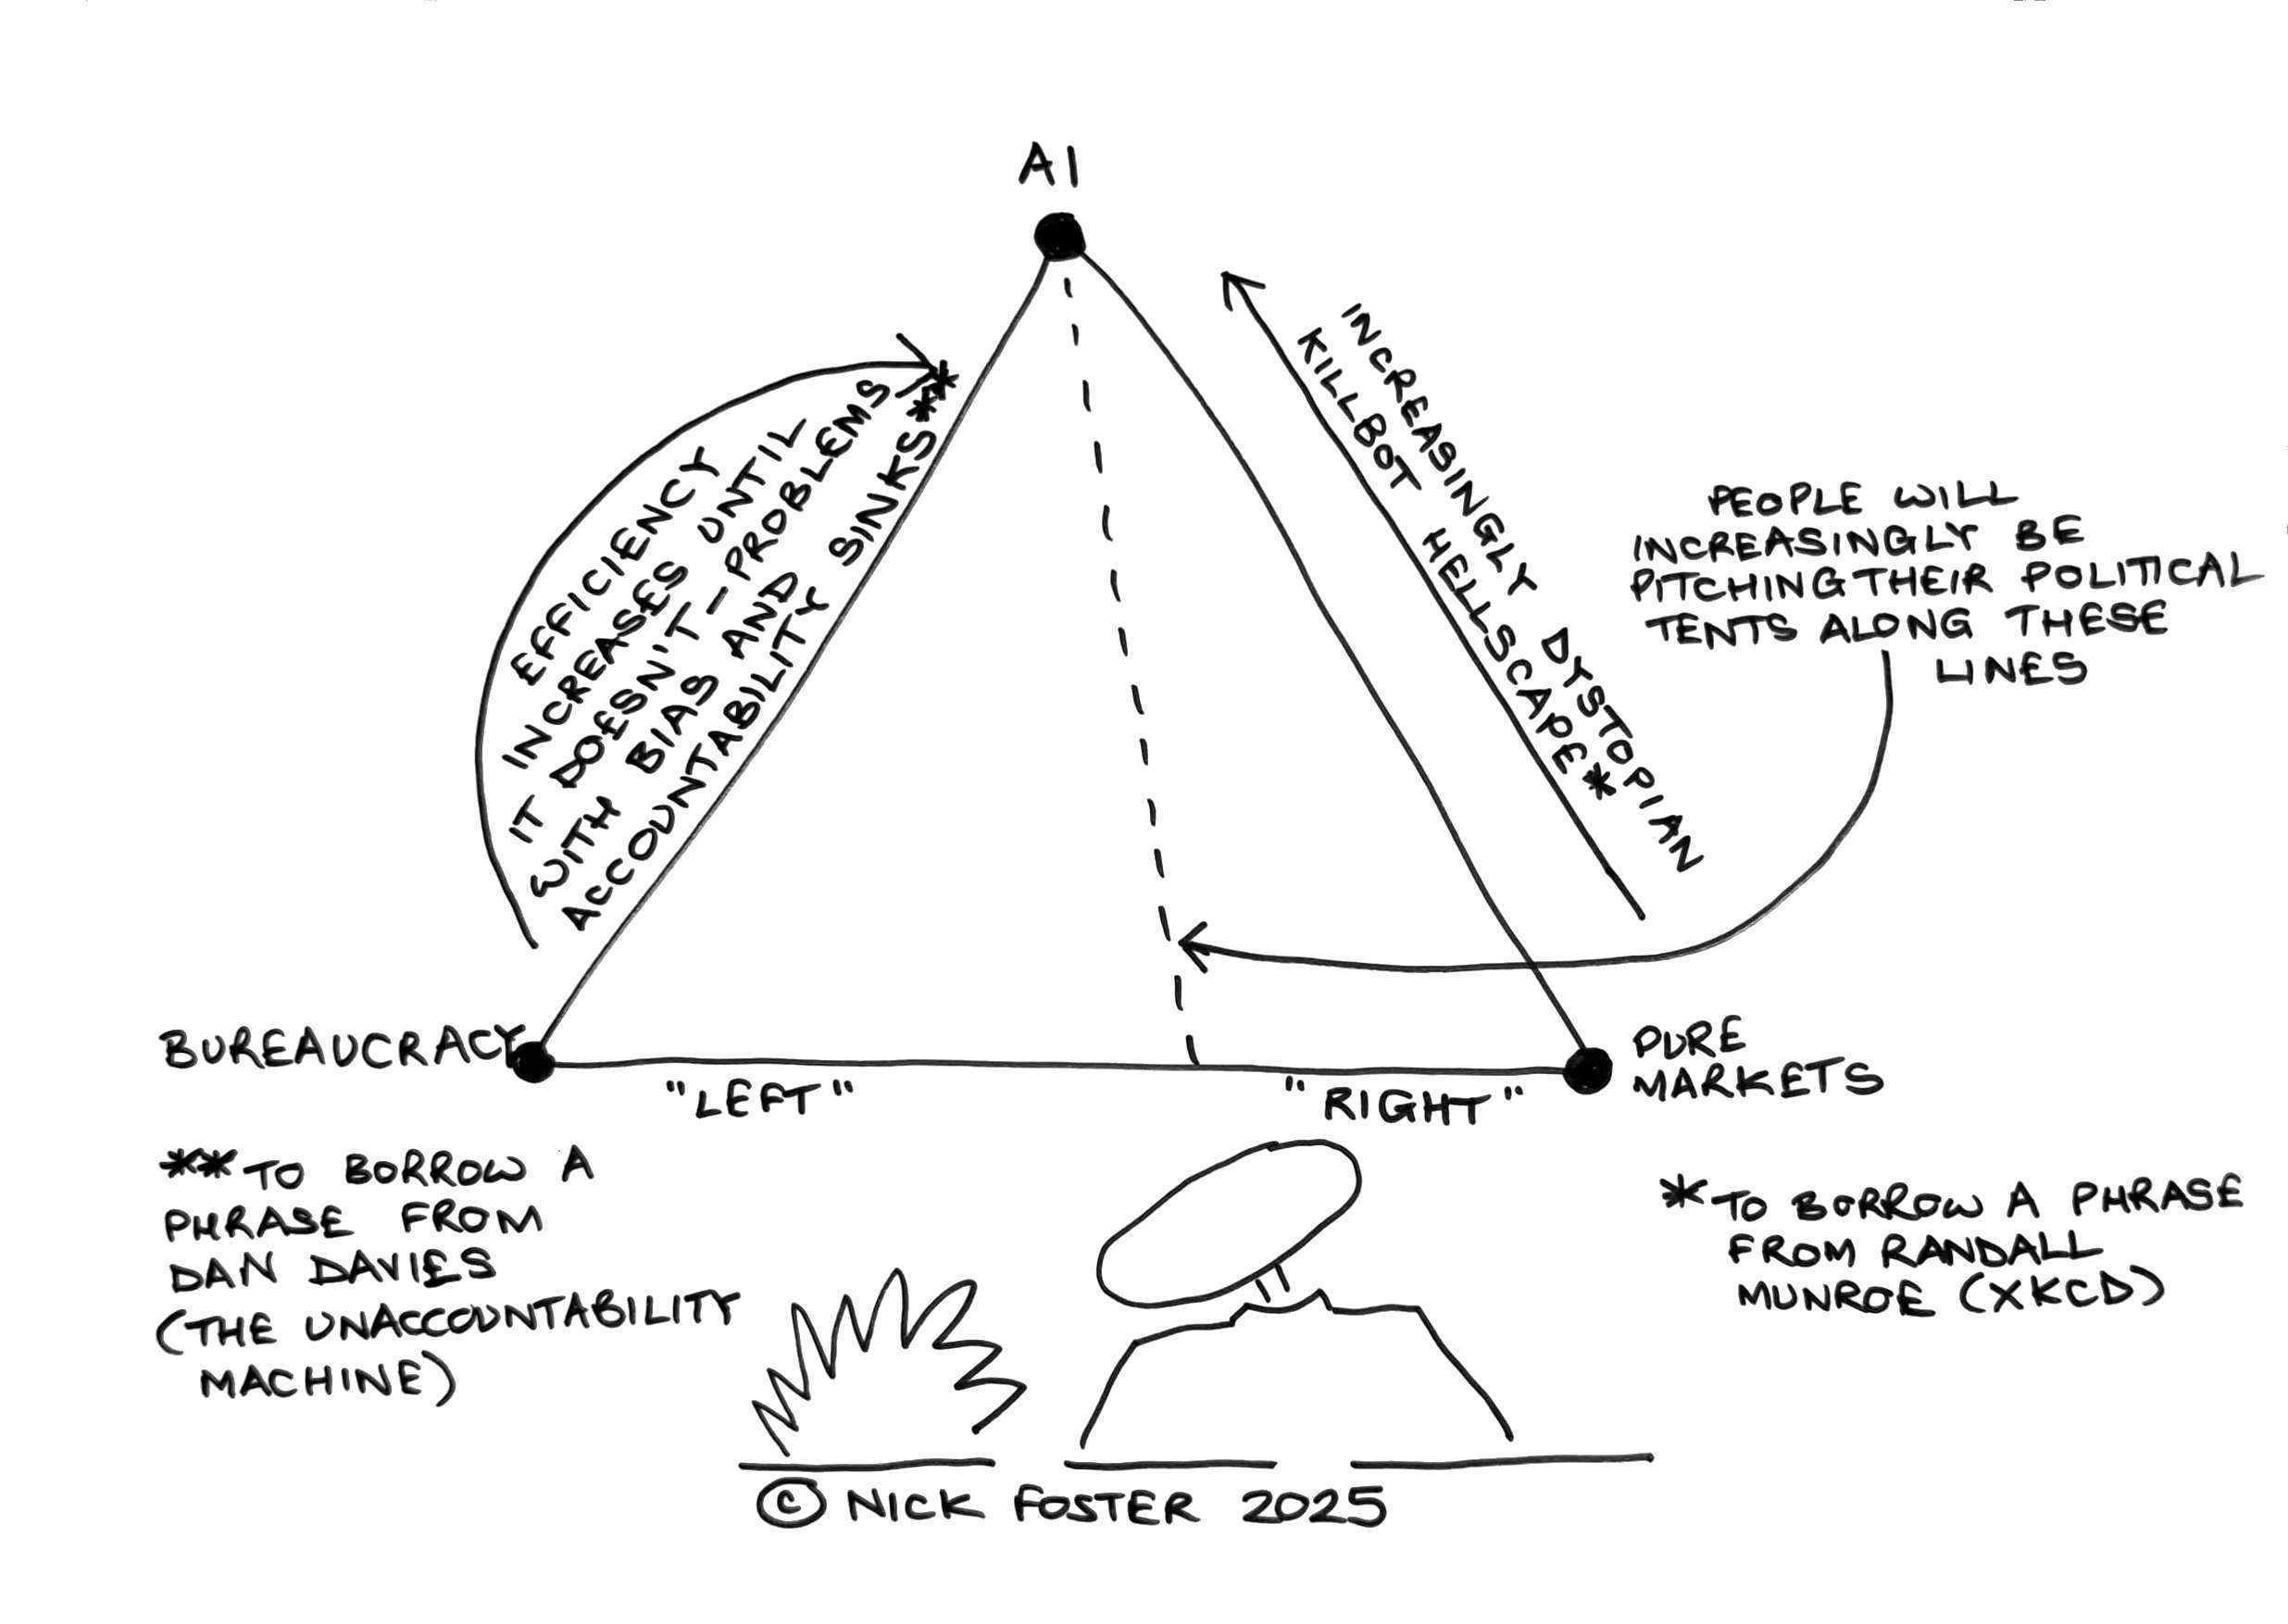 AI
EFFICIENCY
INCREASES UNTIL
IT DOESN'T - PROBLEMS
WITH BIAS AND
ACCOUNTABILITY SINKS**
INCREASINGLY DYSTOPIAN
KILLBOT HELLSCAPE*
PEOPLE WILL
INCREASINGLY BE
PITCHING THEIR POLITICAL
TENTS ALONG THESE
LINES
BUREAUCRACY
"LEFT"
"RIGHT"
PURE
MARKETS
**TO BORROW A
PHRASE FROM
DAN DAVIES
(THE UNACCOUNTABILITY
MACHINE)
*TO BORROW A PHRASE
FROM RANDALL
MUNROE (XKCD)
© NICK FOSTER 2025